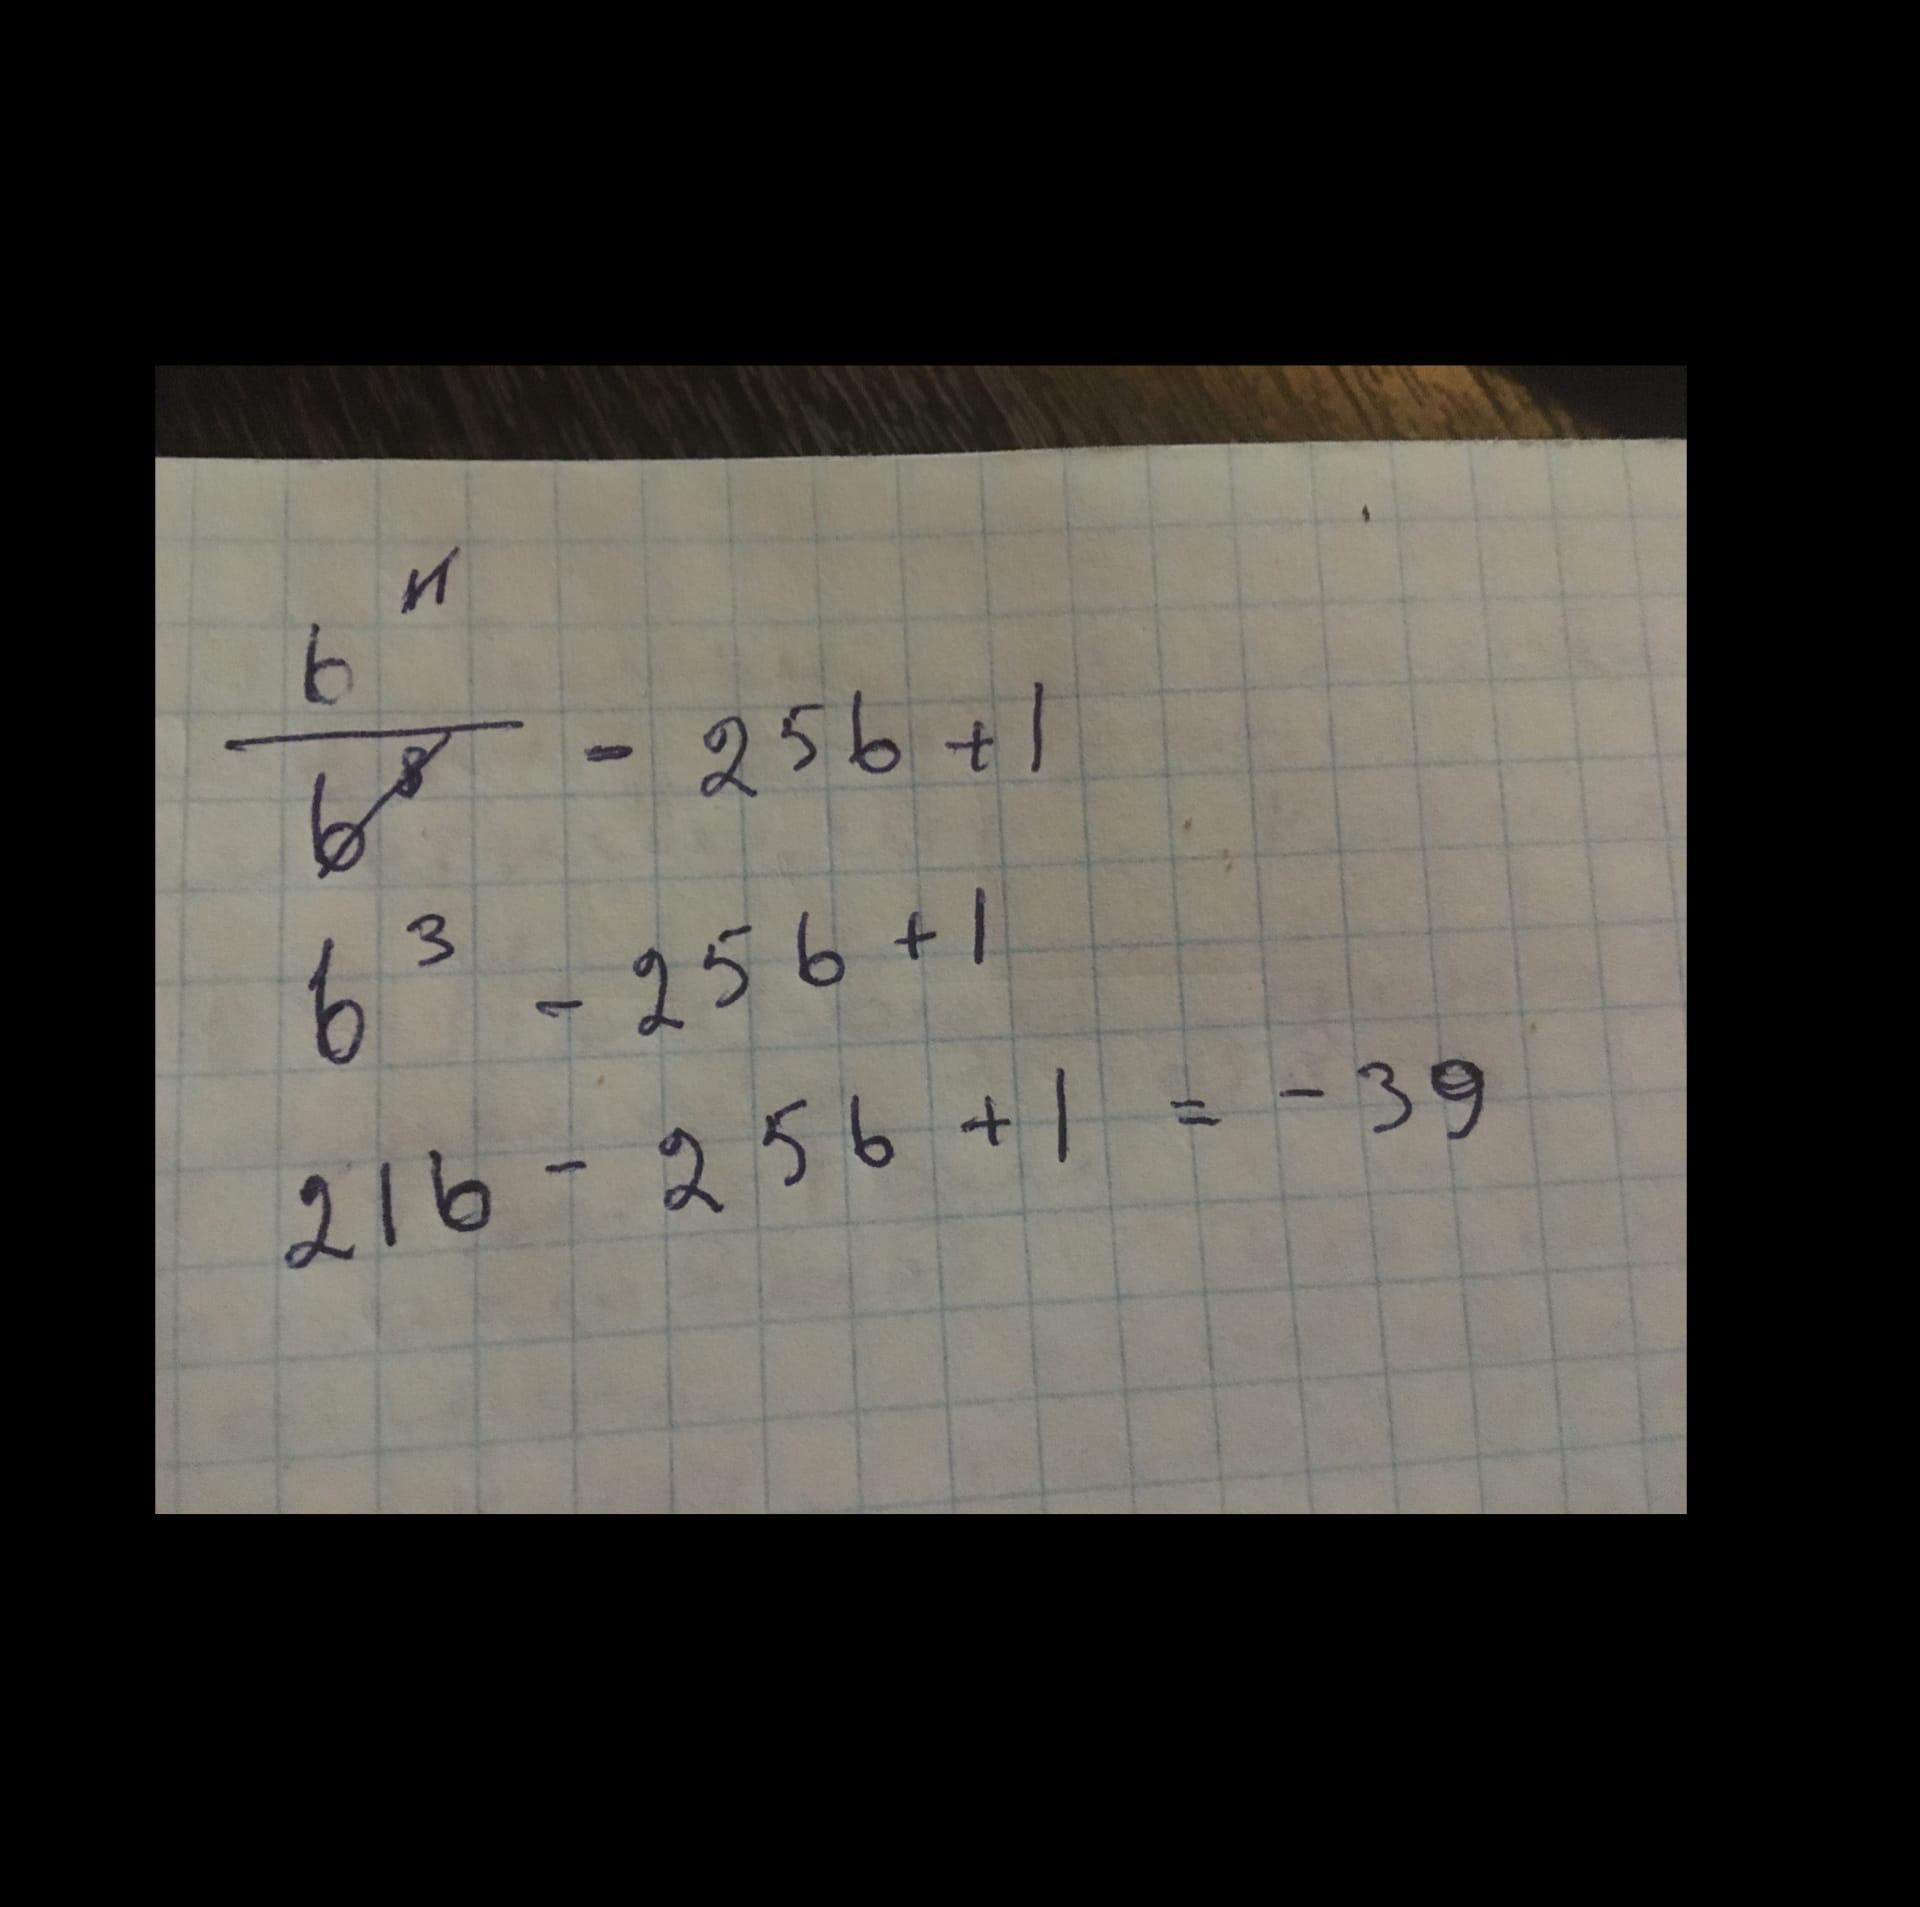 6^11
/
6^8 - 256 + 1
6^3 - 256 + 1
216 - 256 + 1 = - 39